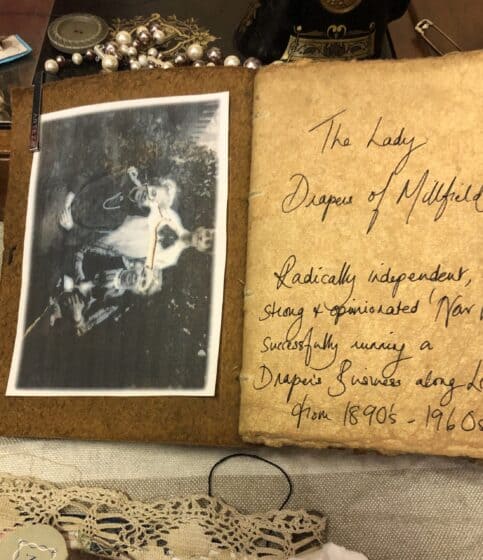 The Lady
Drapers of Millfield
Radically independent,
strong & opinionated
successfully running a
Draper's Business along
from 1890's - 1960s